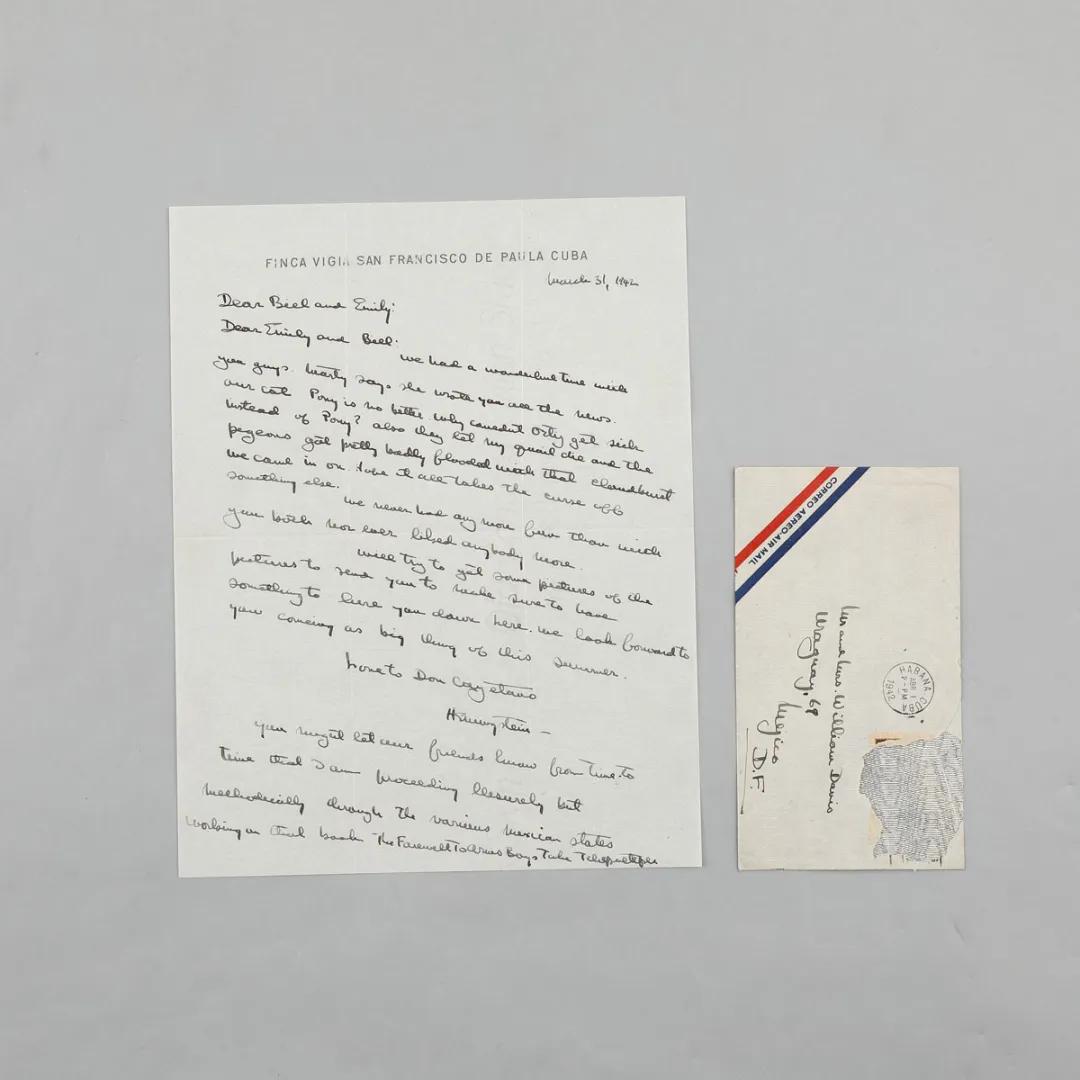 FINCA VIGIA SAN FRANCISCO DE PAULA CUBA
March 31, 1942
Dear Bill and Emily:
Dear Emily and Bill:
we had a wonderful time with
you guys. Marty says she wrote you all the news.
our cat Pony is no better. Why couldn't get sick
instead of Pony? also they let my quail die and the
pigeons got pretty badly flooded with that cloudburst
we came in on. hope it all takes the curse off
something else.
we never had any more fun than with
you both nor ever liked anybody more.
will try to get some pictures of the
pictures to send you to make sure to have
something to lure you down here. we look forward to
your coming as big thing of this summer.
Love to Don Cayetano
Hemingstein —
you might let our friends know from time to
time that I am proceeding leisurely but
methodically through the various Mexican states
working on that book The Farewell To Arms Boys Take
CORREO AEREO-AIR MAIL
Mr and Mrs. William Davis
Uraguay, 69
Mejico
D.F.
HABANA CUBA
ABR 1
PM
1942